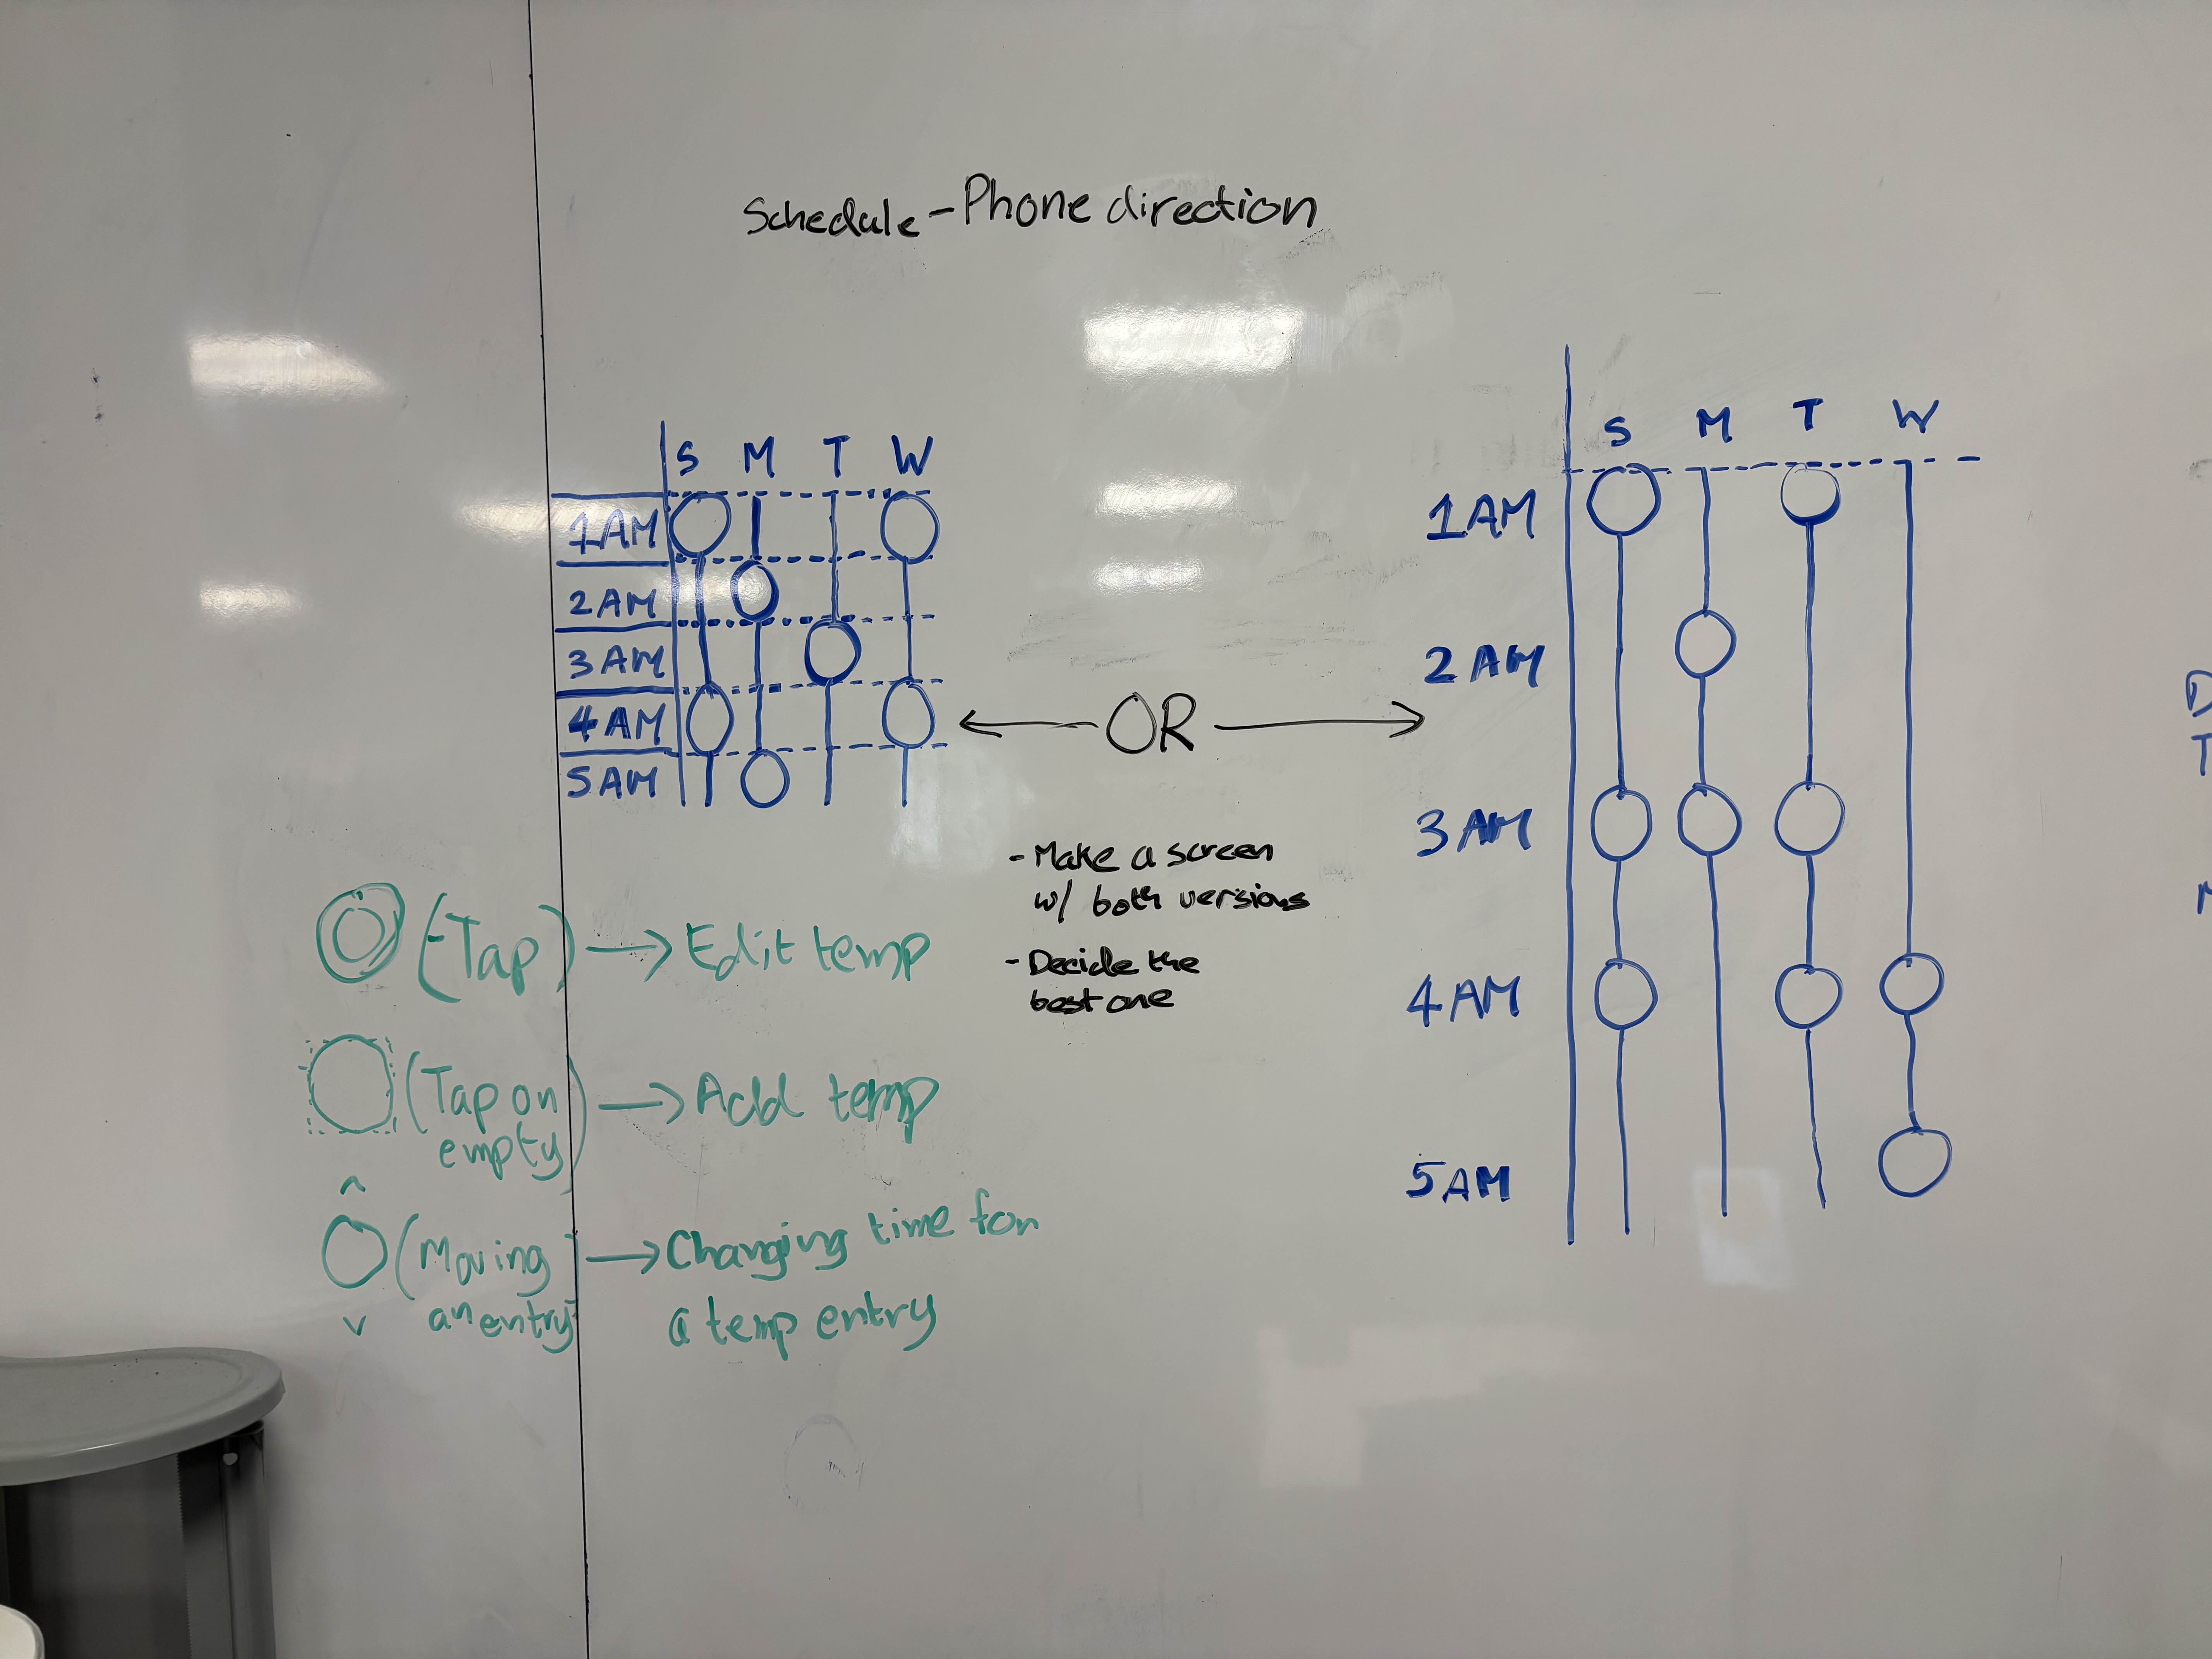 Schedule - Phone direction
S M T W
1AM
2AM
3AM
4AM
5AM
OR
- Make a screen
w/ both versions
- Decide the
best one
S M T W
1AM
2AM
3AM
4AM
5AM
(Tap) → Edit temp
(Tap on
empty) → Add temp
(Moving
an entry) → Changing time for
a temp entry
D
T